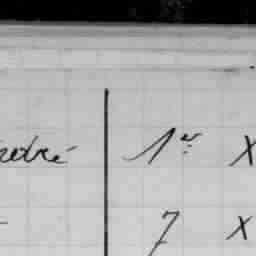 ndré 1er X
7 X